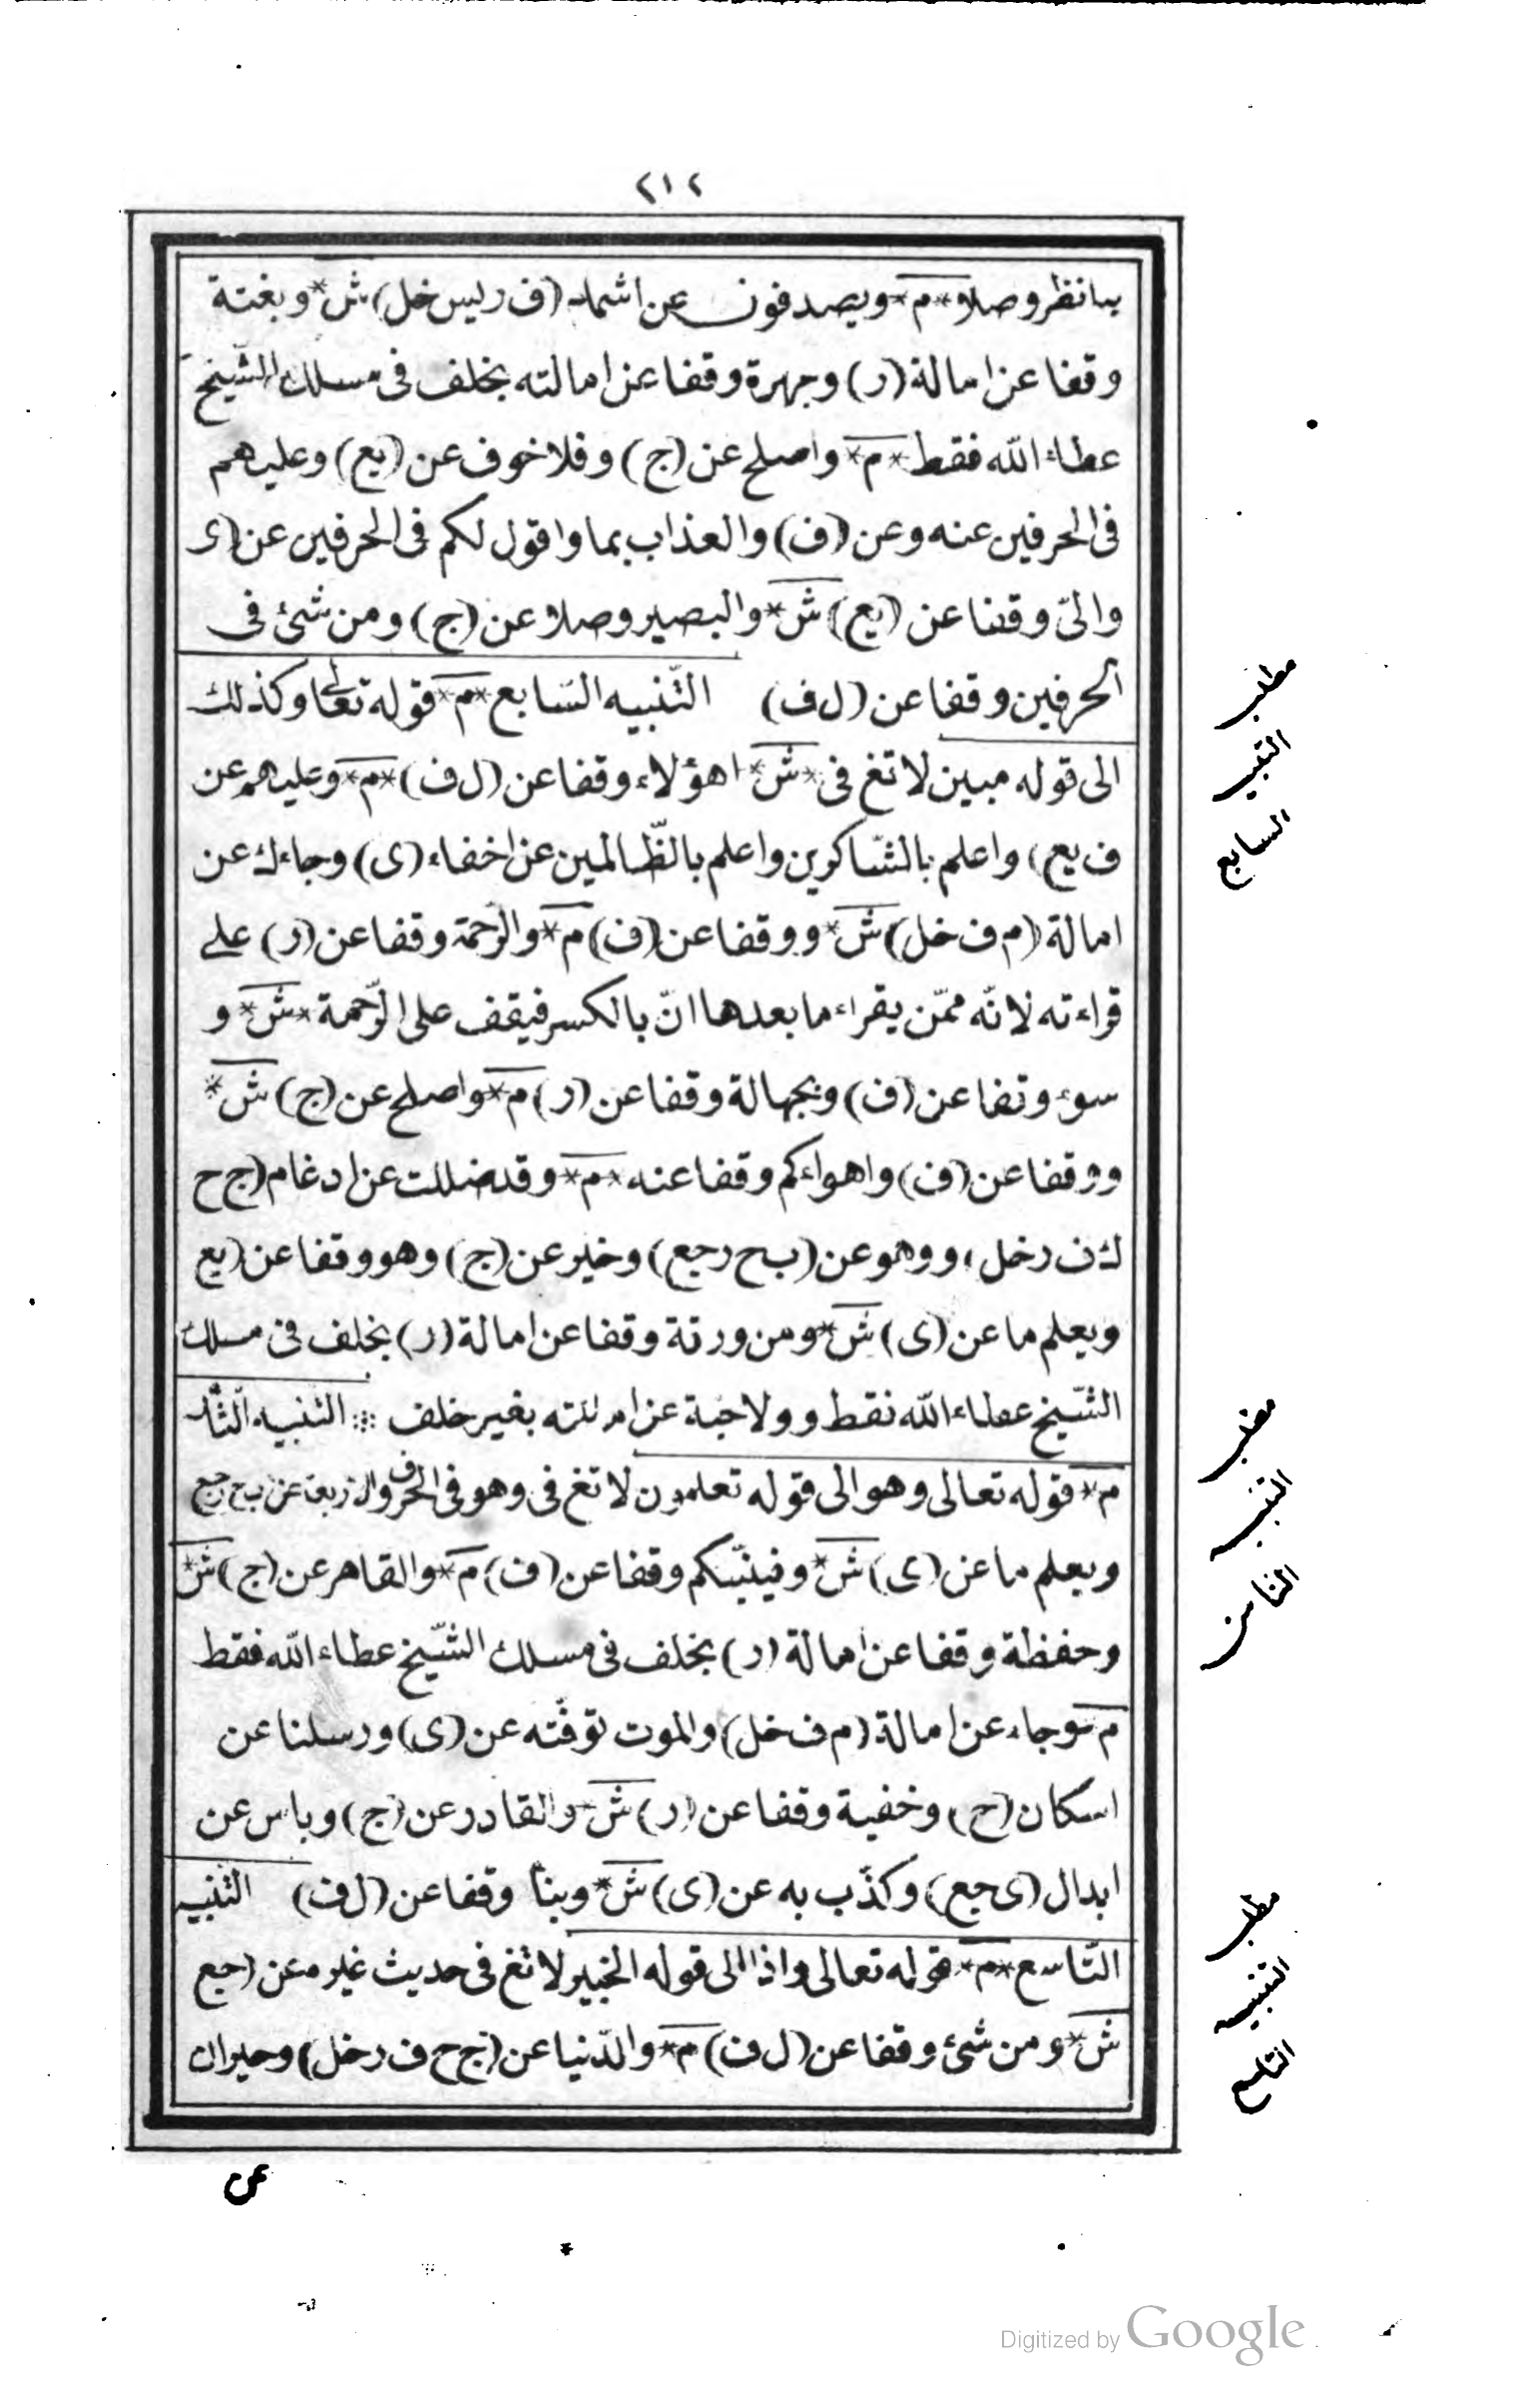 ٢١٢
به انظر وصلا * م * ويصدفون عن اشمام (ف ريس خل) ش * وبغتة
وقفا عن امالة (ر) وجهرة وقفا عن امالته بخلف فى مسلك الشّيخ
عطاء الله فقط * م * واصلح عن (ج) وفلا خوف عن (يع) وعليهم
فى الحرفين عنه وعن (ف) والعذاب بما واقول لكم فى الحرفين عن (ى
والىّ وقفا عن (يع) ش * والبصير وصلا عن (ج) ومن شئ فى
الحرفين وقفا عن (ل ف) التّنبيه السّابع * م * قوله تعالى وكذلك
الى قوله مبين لا تغ فى * ش * اهؤلاء وقفا عن (ل ف) * م * وعليهم عن
ف يع) واعلم بالشّاكرين واعلم بالظّالمين عن اخفاء (ى) وجاءك عن
امالة (م ف خل) ش * ووقفا عن (ف) م * والرّحمة وقفا عن (ر) على
قراءته لانّه ممّن يقراء ما بعدها انّ بالكسر فيقف على الرّحمة * ش * و
سوء وقفا عن (ف) وبجهالة وقفا عن (ر) م * واصلح عن (ج) ش *
ووقفا عن (ف) واهواءكم وقفا عنه * م * وقد ضللت عن ادغام (ج ح
ك ف ر خل) ووهو عن (ب ح ر جع) وخير عن (ج) وهو وقفا عن (يع
ويعلم ما عن (ى) ش * ومن ورقة وقفا عن امالة (ر) بخلف فى مسلك
الشّيخ عطاء الله فقط وولا حبة عن امالته بغير خلف ؞ التّنبيه الثّا
م * قوله تعالى وهو الى قوله تعلمون لا تغ فى وهو فى الحروف الاربعة عن ب ح ر جع
ويعلم ما عن (ى) ش * وفينبّئكم وقفا عن (ف) م * والقاهر عن (ج) ش *
وحفظة وقفا عن امالة (ر) بخلف فى مسلك الشّيخ عطاء الله فقط
م * وجاء عن امالة (م ف خل) والموت توفّته عن (ى) ورسلنا عن
اسكان (ح) وخفية وقفا عن (ر) ش * والقادر عن (ج) وباس عن
ابدال (ى جع) وكذّب به عن (ى) ش * وبنأ وقفا عن (ل ف) التّنبيه
التّاسع * م * قوله تعالى واذا الى قوله الخبير لا تغ فى حديث غيره عن (جع
ش * ومن شئ وقفا عن (ل ف) م * والدّنيا عن (ج ح ف ر خل) وحيران
عن
مطلب
التنبيه
السابع
مطلب
التنبيه
الثامن
مطلب
التنبيه
التاسع
Digitized by Google